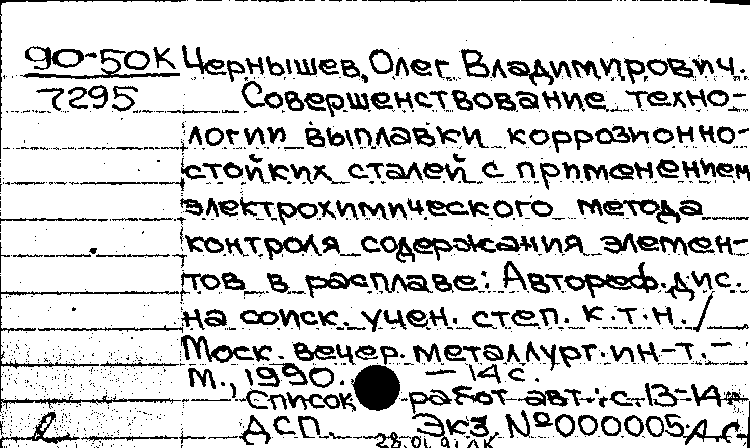 90-50К Чернышев, Олег Владимирович.
7295 Совершенствование техно-
логии выплавки коррозионно-
стойких сталей с применением
электрохимического метода
контроля содержания элемен-
тов в расплаве: Автореф. дис.
на соиск. учен. степ. к.т.н. /
Моск. вечер. металлург. ин-т. –
М., 1990. – 14 с.
Список работ авт.: с. 13-14.
ДСП. Экз. № 000005